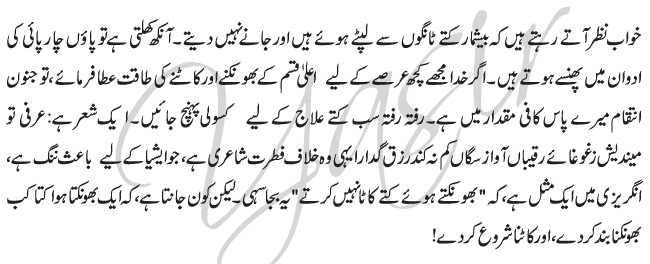 خواب نظر آتے رہتے ہیں کہ بیشمار کتے ٹانگوں سے لپٹے ہوئے ہیں اور جانے نہیں دیتے۔ آنکھ کھلتی ہے تو پاؤں چارپائی کی
ادوان میں پھنسے ہوتے ہیں۔ اگر خدا مجھے کچھ عرصے کے لیے اعلیٰ قسم کے بھونکنے اور کاٹنے کی طاقت عطا فرمائے، تو جنون
انتقام میرے پاس کافی مقدار میں ہے۔ رفتہ رفتہ سب کتے علاج کے لیے کسولی پہنچ جائیں۔ ایک شعر ہے: عرفی تو
میندیش زغوغائے رقیباں آواز سگاں کم نہ کند رزق گدارا یہی وہ خلاف فطرت شاعری ہے، جو ایشیا کے لیے باعث ننگ ہے،
انگریزی میں ایک مثل ہے، کہ "بھونکتے ہوئے کتے کاٹا نہیں کرتے" یہ بجا سہی۔ لیکن کون جانتا ہے، کہ ایک بھونکتا ہوا کتا کب
بھونکنا بند کردے، اور کاٹنا شروع کردے!